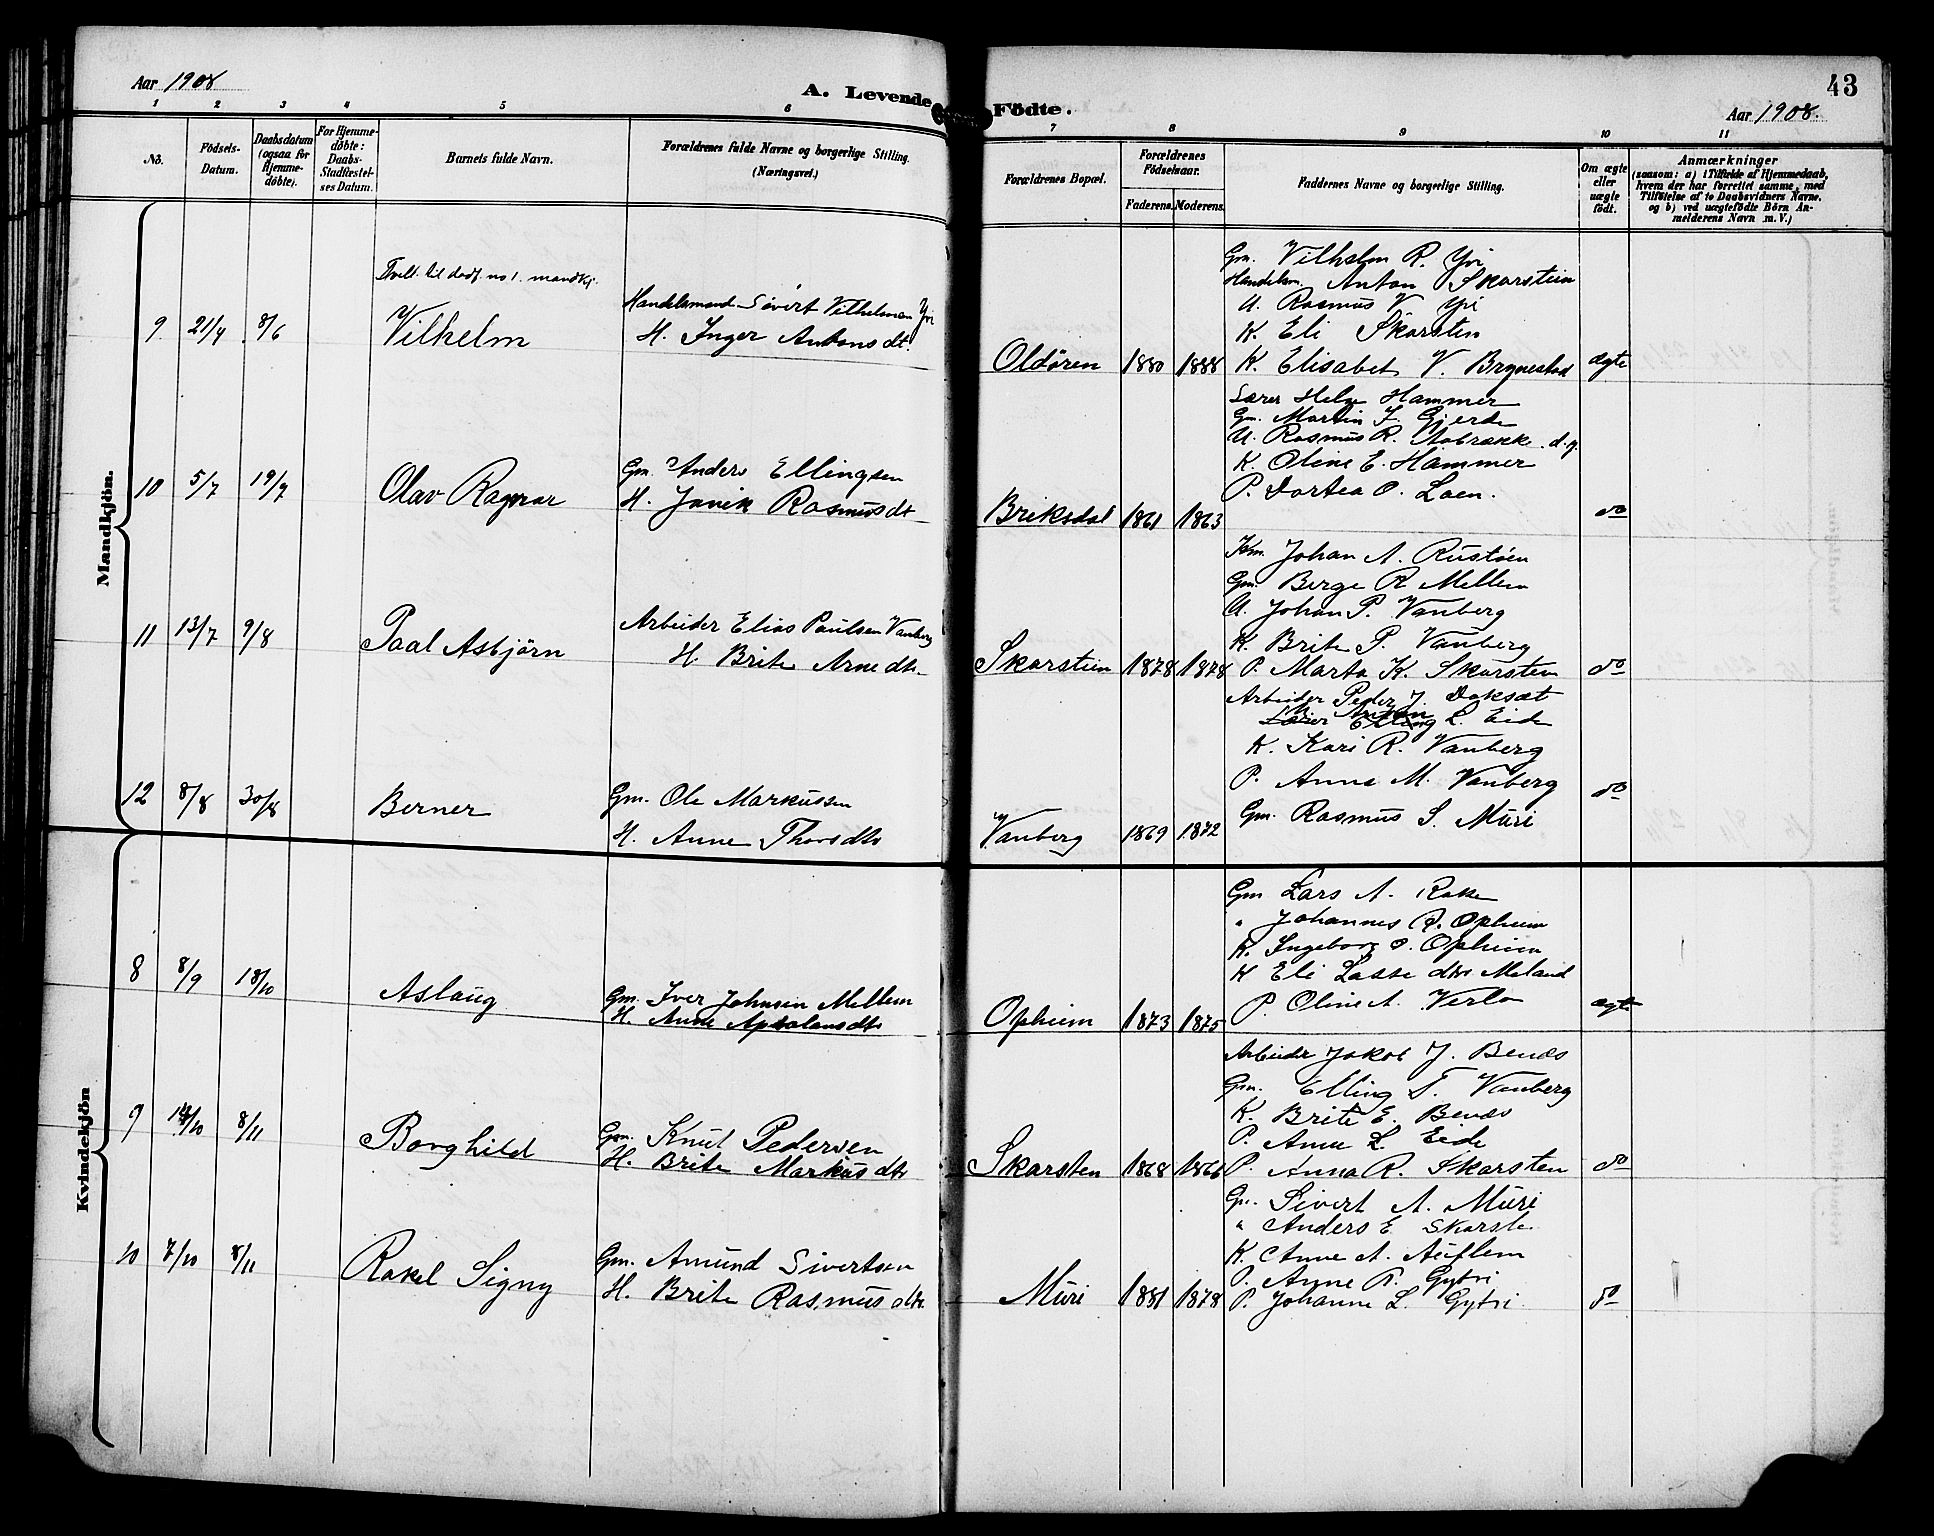 Aar 1908
A. Levende Födte.
43
Aar 1908.
1 2 3 4 5 6 7 8 9 10 11
No.
Födsels-
Datum.
Daabsdatum
(ogsaa for
Hjemme-
döbte).
For Hjemme-
döbte:
Daabs-
Stadfæstel-
ses Datum.
Barnets fulde Navn.
Forældrenes fulde Navne og borgerlige Stilling.
(Næringsvei.)
Forældrenes Bopæl.
Forældrenes
Födselsaar.
Faderens. Moderens.
Faddernes Navne og borgerlige Stilling.
Om ægte
eller
uægte
födt.
Anmærkninger
(saasom: a) i Tilfælde af Hjemmedaab,
hvem der har forrettet samme, med
Tilföielse af to Daabsvidners Navne.
og b) ved uægtefödte Börn An-
melderens Navn m. V.)
Mandkjön.
Tvill. til dødf. no 1. mandkj.
9 21/4 8/6 Vilhelm
Handelsmand Sivert Vilhelmsen Yri
H. Inger Antonsdt.
Oldøren 1880 1888
Gm. Vilhelm R. Yri
Handelsm. Anton Skarstein
U. Rasmus V. Yri
K. Eli Skarsten
K. Elisabet V. Brynestad
ægte
10 5/7 19/7 Olav Ragnar
Gm. Anders Ellingsen
H. Janik Rasmusdt
Briksdal 1861 1863
Lærer Helge Hammer
Gm. Martin J. Gjerde
U. Rasmus R. Aabrække d.y.
K. Oline E. Hammer
P. Dortea O. Loen.
do
11 13/7 9/8 Paal Asbjørn
Arbeider Elias Paulsen Vanberg
H. Brite Arnedtr.
Skarstein 1878 1878
Km. Johan A. Rustøen
Gm. Berge R. Mellem
U. Johan P. Vanberg
K. Brite P. Vanberg
P. Marta K. Skarsten
do
12 8/8 30/8 Berner
Gm. Ole Markussen
H. Anne Thorsdtr
Vanberg 1869 1872
Arbeider Peder J. Doksæt
L. Eide
K. Kari R. Vanberg
P. Anna M. Vanberg
Gm. Rasmus S. Muri
do
Kvindekjön
8 8/9 18/10 Aslaug
Gm. Iver Johnsen Mellem
H. Anne Apsalonsdtr
Opheim 1873 1875
Gm Lars A. Rake
" Johannes R. Opheim
K. Ingeborg O. Opheim
K Eli Lassedtr Meland
P. Oline A. Verlo
ægte
9 8/11 Borghild
Gm. Knut Pedersen
H. Brite Markusdtr
Skarsten 1868 1866
Arbeider Jakob J. Benæs
Gm. Elling T. Vanberg
K. Brite E. Benæs
P. Anne L. Eide
P. Anna R. Skarsten
do
10 7/10 8/11 Rakel Signy
Gm. Amund Sivertsen
H. Brite Rasmusdtr.
Muri 1881 1878
Gm. Sivert A. Muri
" Anders E. Skarste
K. Anne A. Auflem
P. Anne R. Gytri
P. Johanne L. Gytri.
do